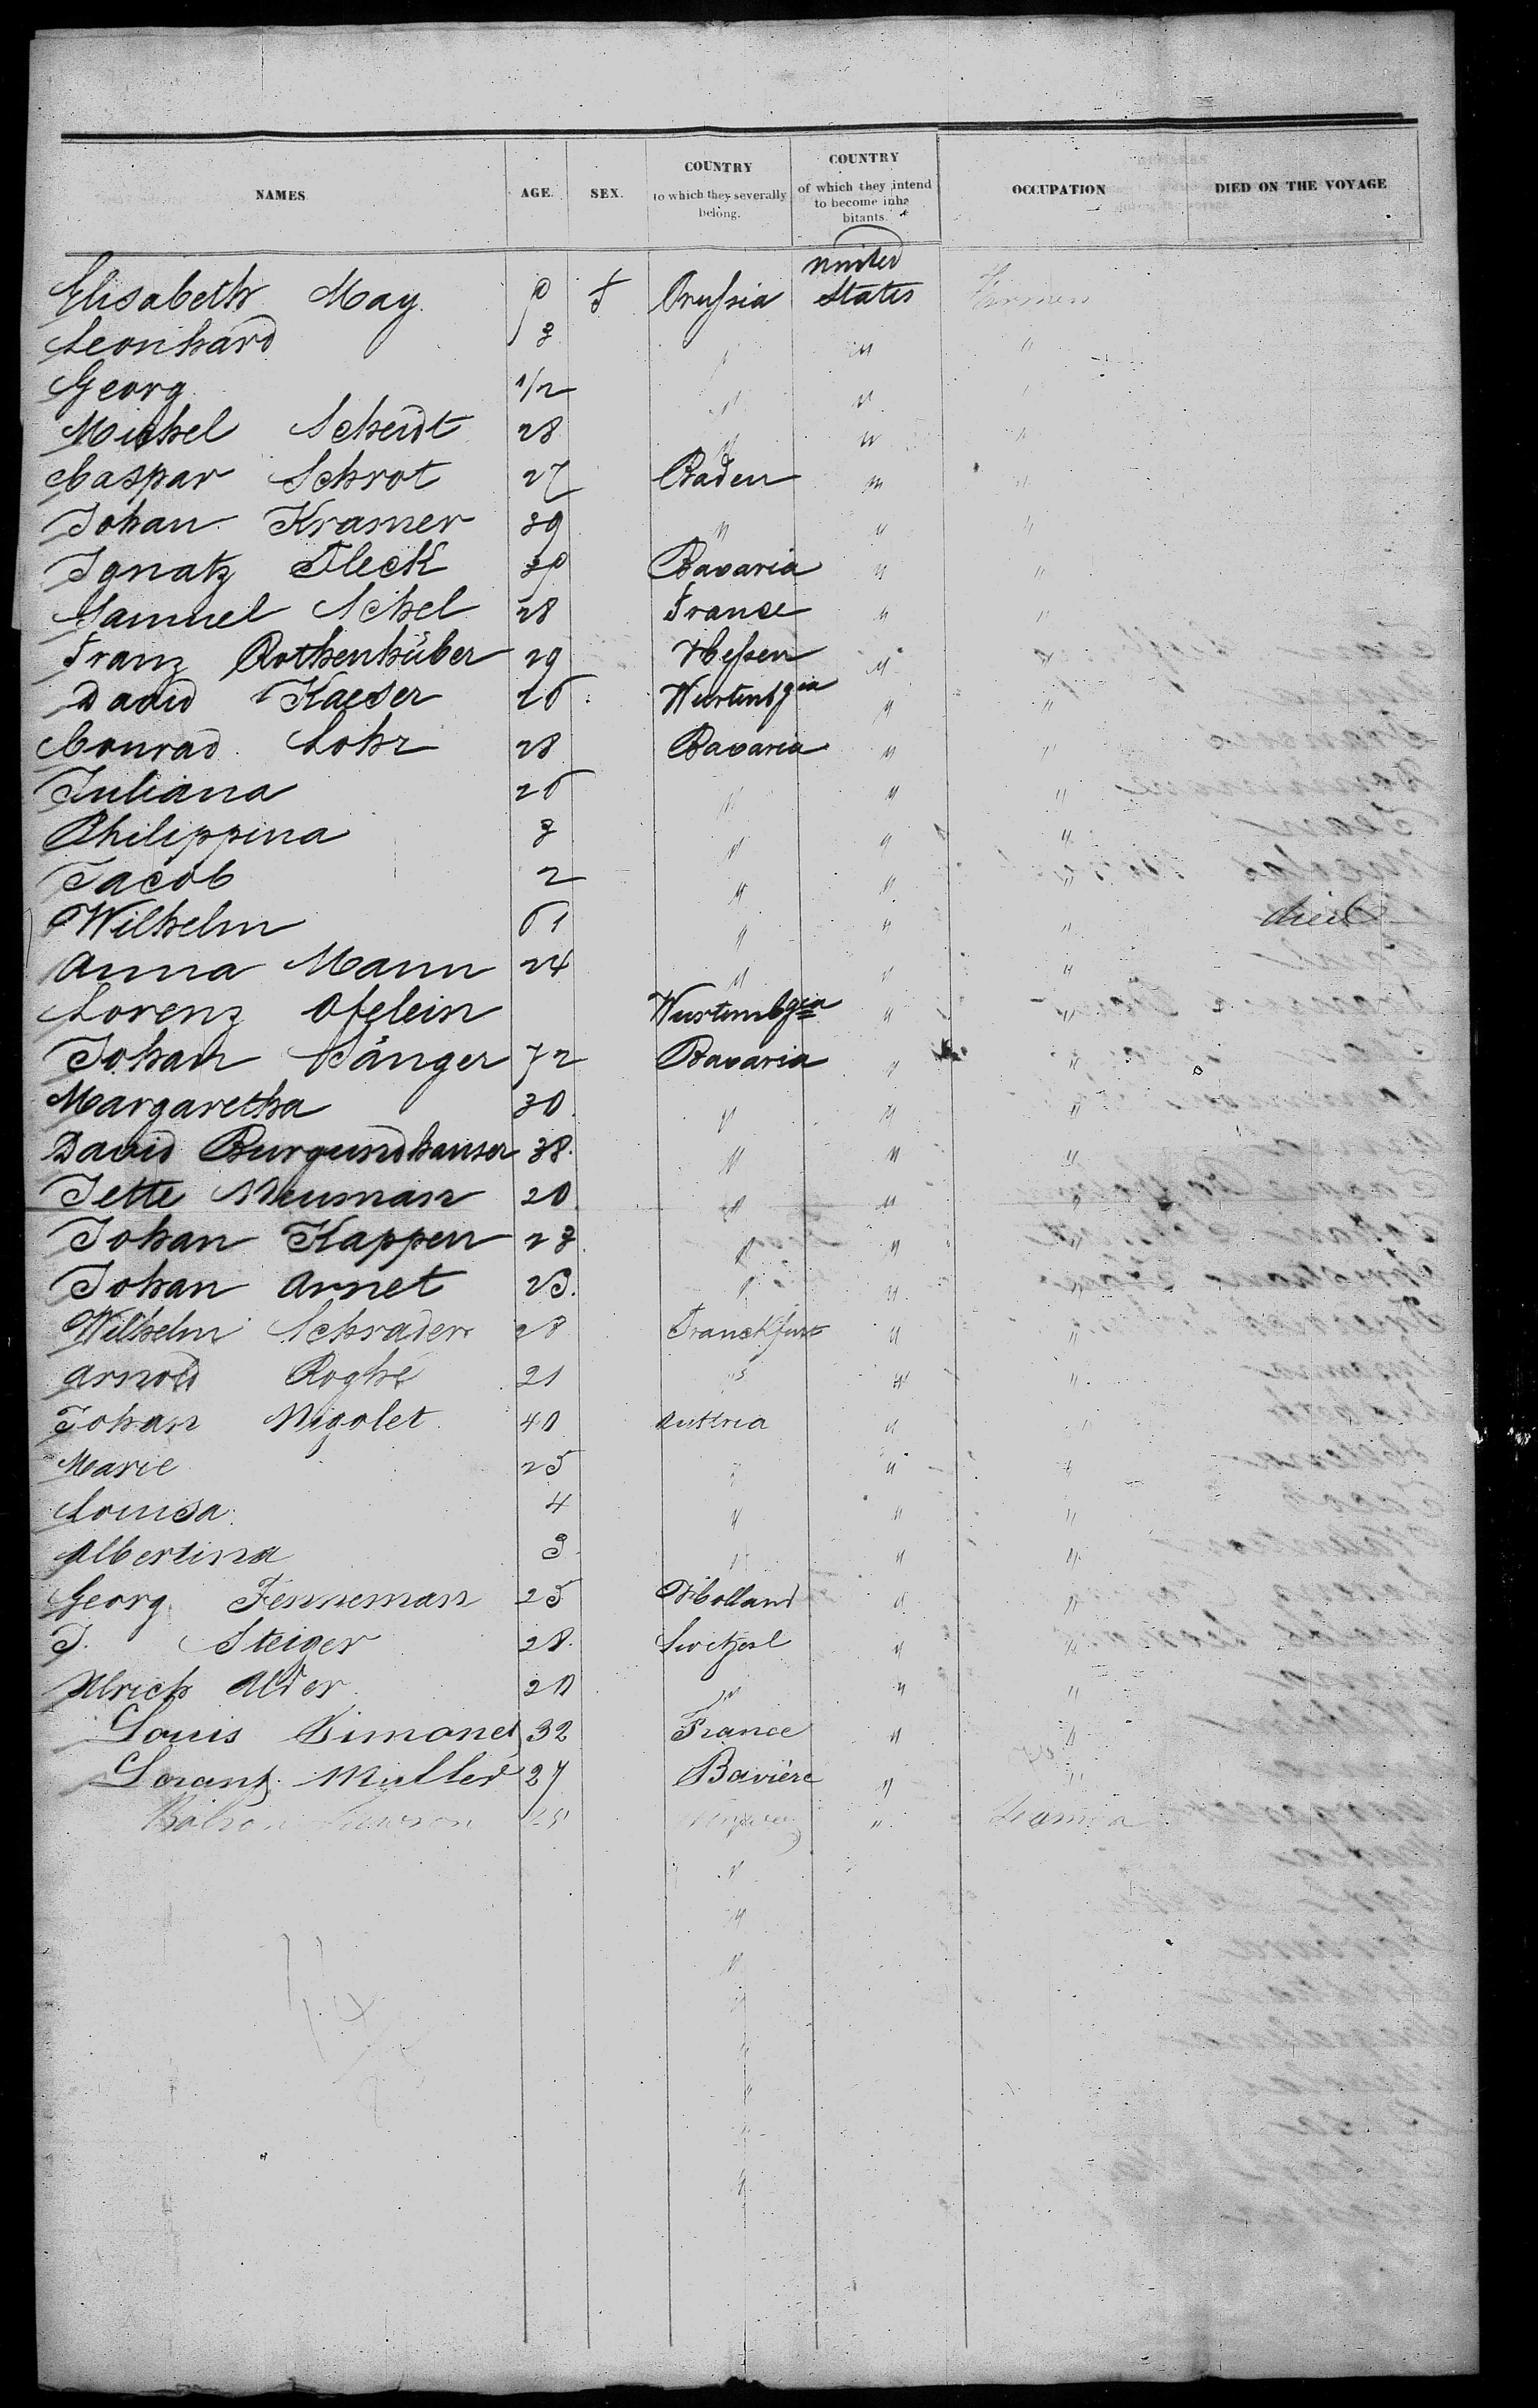 NAMES AGE. SEX. COUNTRY to which they severally belong. COUNTRY of which they intend to become inha bitants. OCCUPATION DIED ON THE VOYAGE
united
Elisabeth May F Prussia States
Leonhard 3 " "
Georg 1/2 " " "
Michel Scheidt 28 " " "
Caspar Schrot 27 Baden " "
Johan Kramer 39 " " "
Ignatz Fleck 30 Bavaria " "
Samuel Schel 28 France " "
Franz Rothenhüber 29 Hessen " "
David Kaeser 26 "  "
Conrad Lohr 28 Bavaria " "
Juliana 26 " " "
Philippina 3 " " "
Jacob 2 " " "
Wilhelm " " " died
Anna Mann 24 " " "
Lorenz Ofelein " "
Johan Sänger 72 Bavaria " "
Margaretha 30 " " "
David Burgundhauser 38 " " "
Jette Neuman 20 " " "
Johan Kappen 23 " " "
Johan Arnet 23 " " "
Wilhelm Schrader 28 Franckfurt " "
Arnold Roghé 21 " " "
Johan Nigolet 40 Austria " "
Marie 25 " " "
Louisa 4 " " "
Albertina 3 " " "
Georg Fenneman 25 Holland " "
J. Steiger 28 Switzerl " "
Ulrich Alder 20 " " "
Louis Simonet 32 France " "
Lorantz Muller 27 Bavière " "
"
"
"
"
"
"
"
"
"